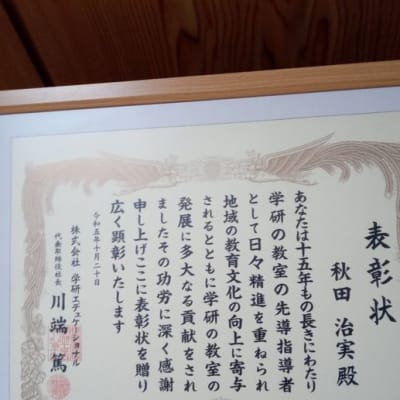 表彰状
秋田治実殿
あなたは十五年もの長きにわたり
学研の教室の先導指導者
として日々精進を重ねられ
地域の教育文化の向上に寄与
されるとともに学研の教室の
発展に多大なる貢献をされ
ましたその功労に深く感謝
申し上げここに表彰状を贈り
広く顕彰いたします
令和五年十月二十日
株式会社 学研エデュケーショナル
代表取締役社長 川端篤